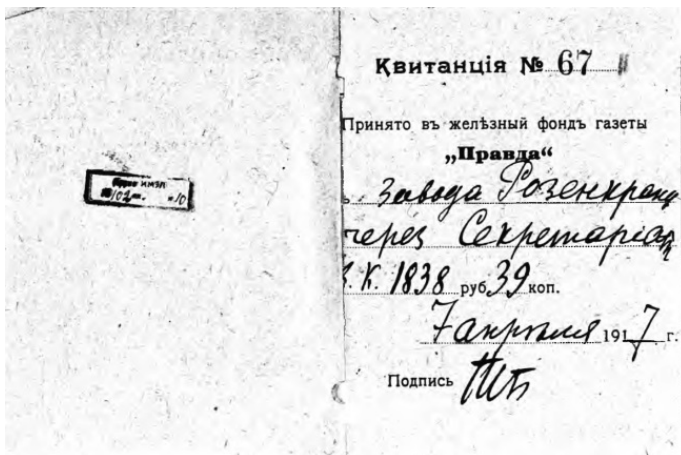 Квитанцiя № 67
Принято въ желѣзный фондъ газеты
„Правда“
завода Розенкранц
через Секретариат
К. 1838 руб 39 коп.
7 апреля 1917 г.
Подпись